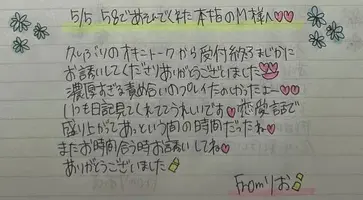 5/5 58分であそんでくれた本指のM様へ♡♡
久しぶりのオキニトークから受付終了まぢかに
お誘いしてくださりありがとうございました
濃厚すぎる責め合いのプレイたのしかったよー♡♡
いつも日記見てくれててうれしいです♡恋愛話まで
盛り上がってあっという間の時間だったね♡
またお時間合う時お誘いしてね♡
ありがとうございました
Fromりお